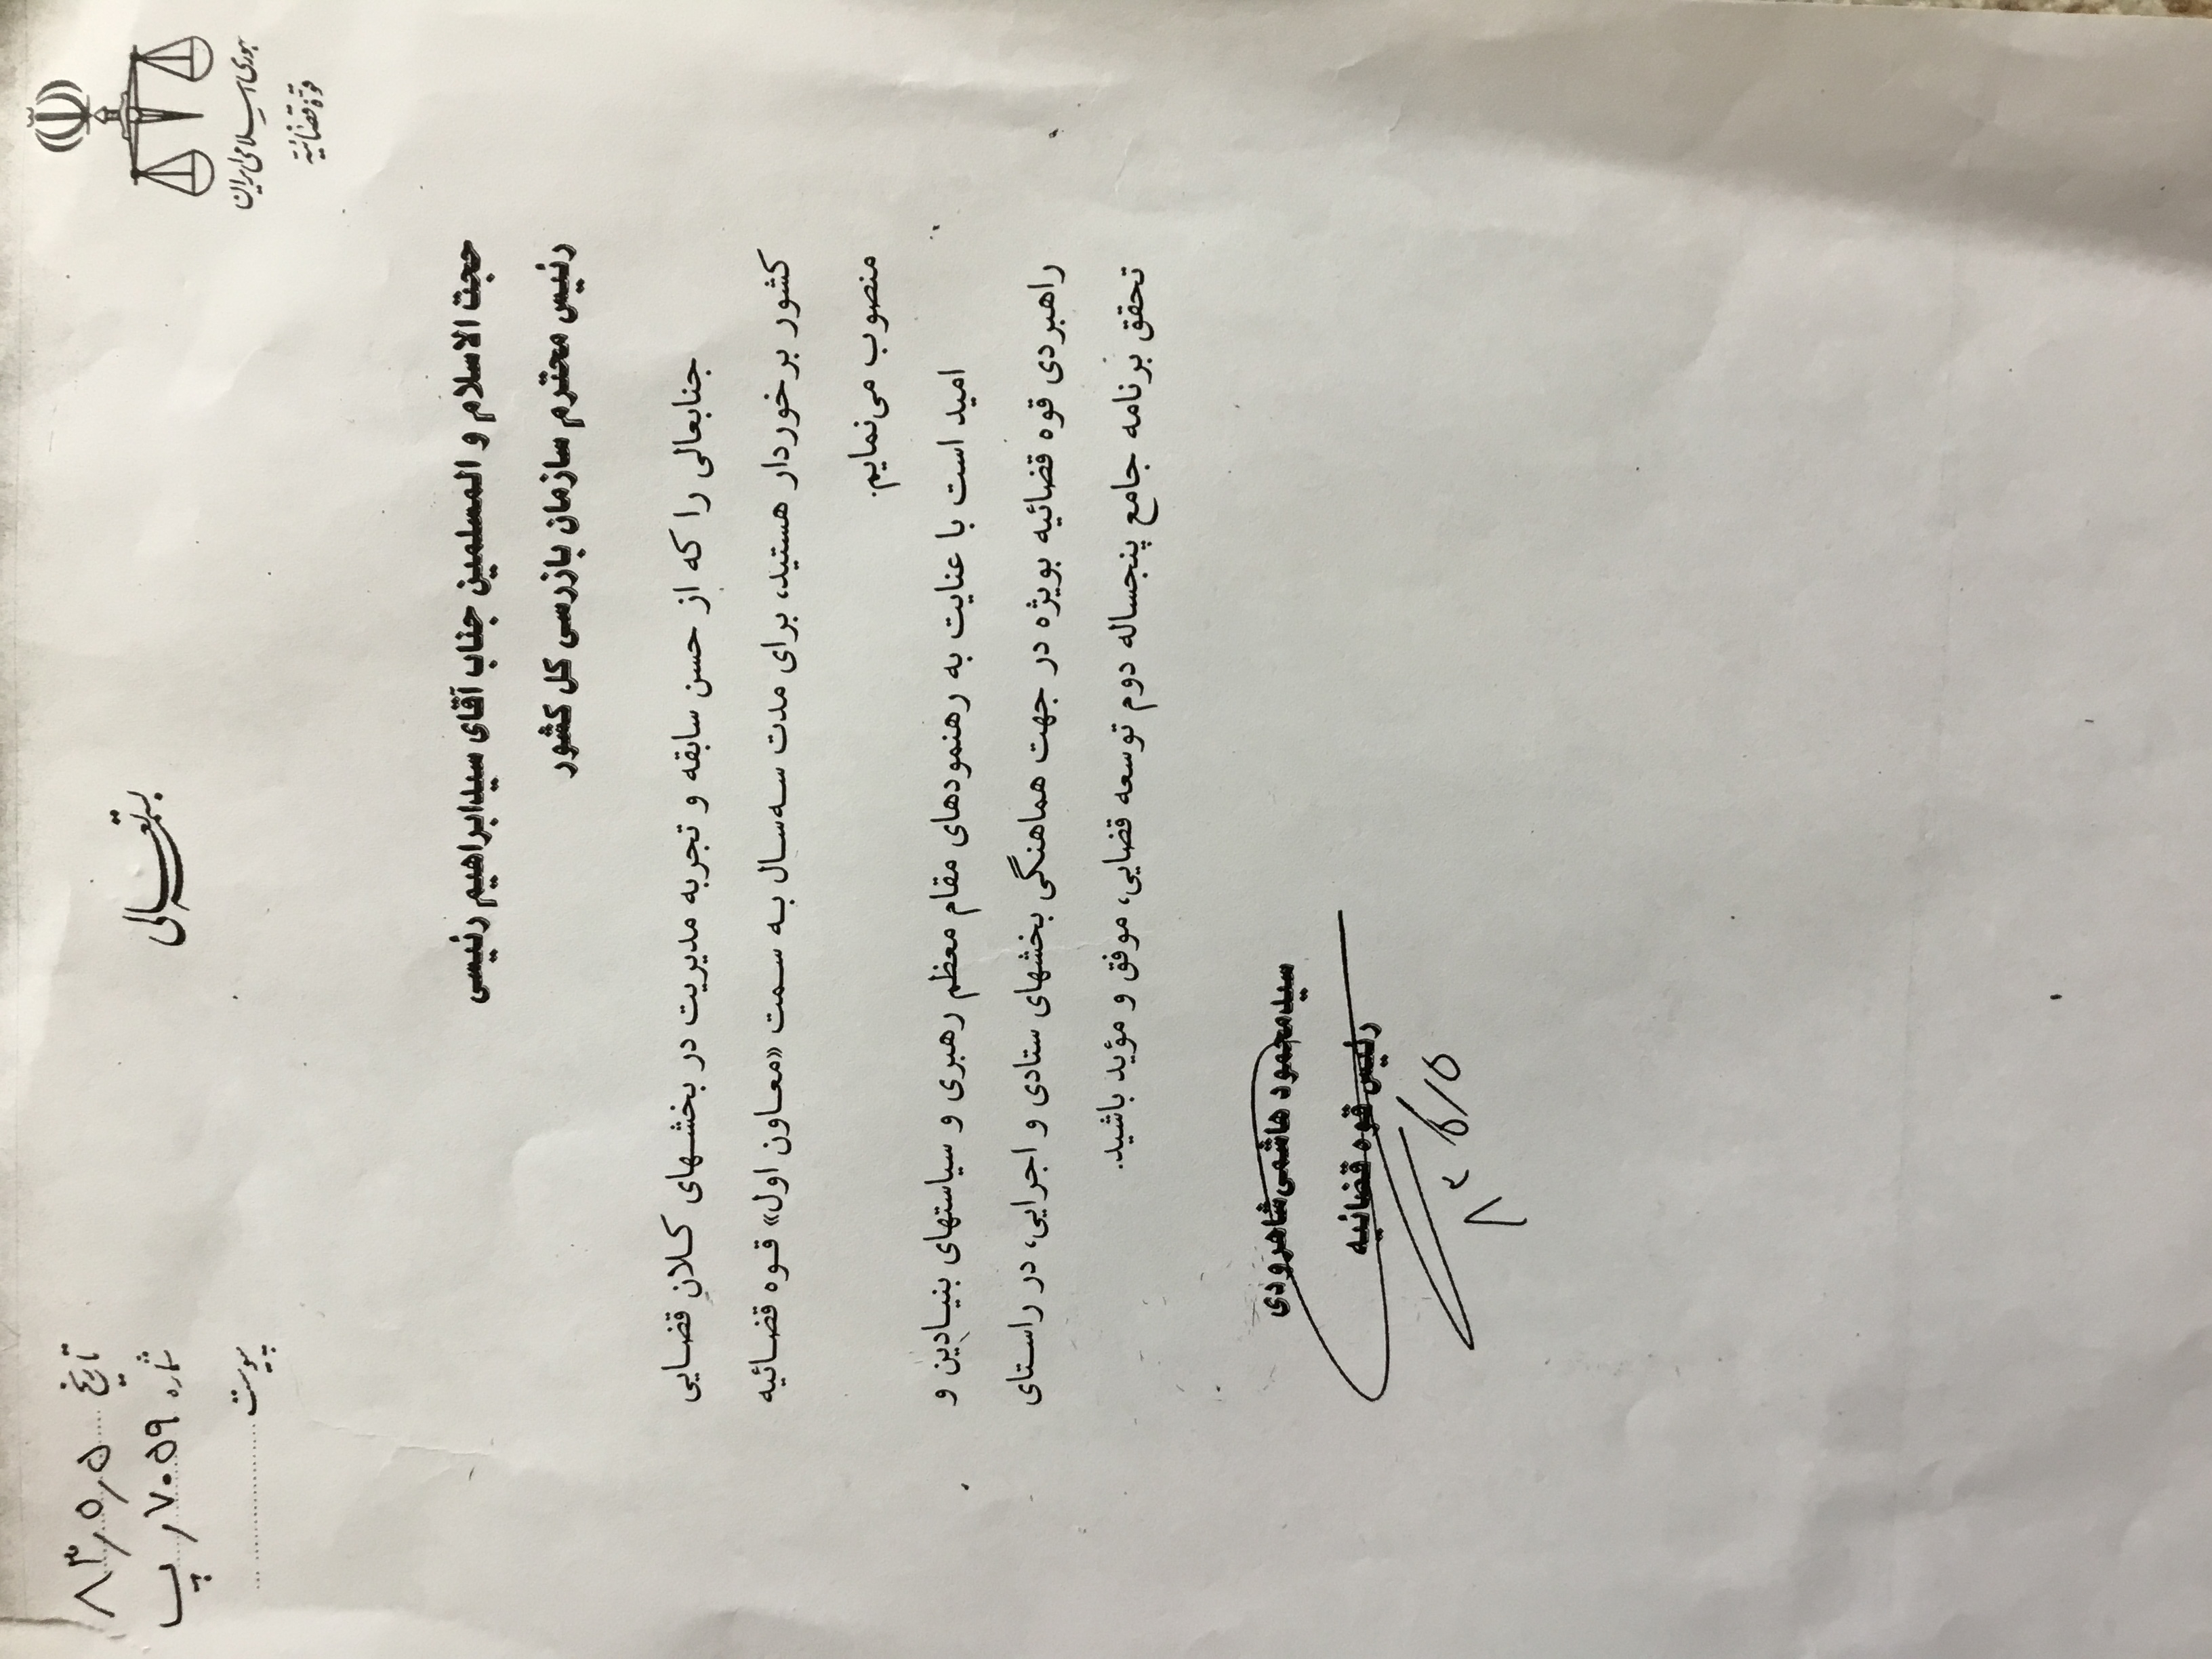 جمهوری اسلامی ایران
قوه قضائیه
بسمه‌تعالی
تاریخ ۸۳/۵/۵
شماره ۷۰۵۹/پ
پیوست
حجت الاسلام و المسلمین جناب آقای سیدابراهیم رئیسی
رئیس محترم سازمان بازرسی کل کشور
جنابعالی را که از حسن سابقه و تجربه مدیریت در بخشهای کلان قضایی
کشور برخوردار هستید، برای مدت سه‌سال به سمت «معاون اول» قوه قضائیه
منصوب می‌نمایم.
امید است با عنایت به رهنمودهای مقام معظم رهبری و سیاستهای بنیادین و
راهبردی قوه قضائیه بویژه در جهت هماهنگی بخشهای ستادی و اجرایی، در راستای
تحقق برنامه جامع پنجساله دوم توسعه قضایی، موفق و مؤید باشید.
سیدمحمود هاشمی شاهرودی
رئیس قوه قضائیه